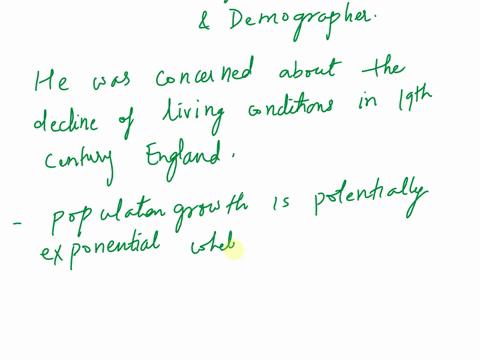 & Demographer.
He was concerned about the
decline of living conditions in 19th
century England.
- population growth is potentially
exponential